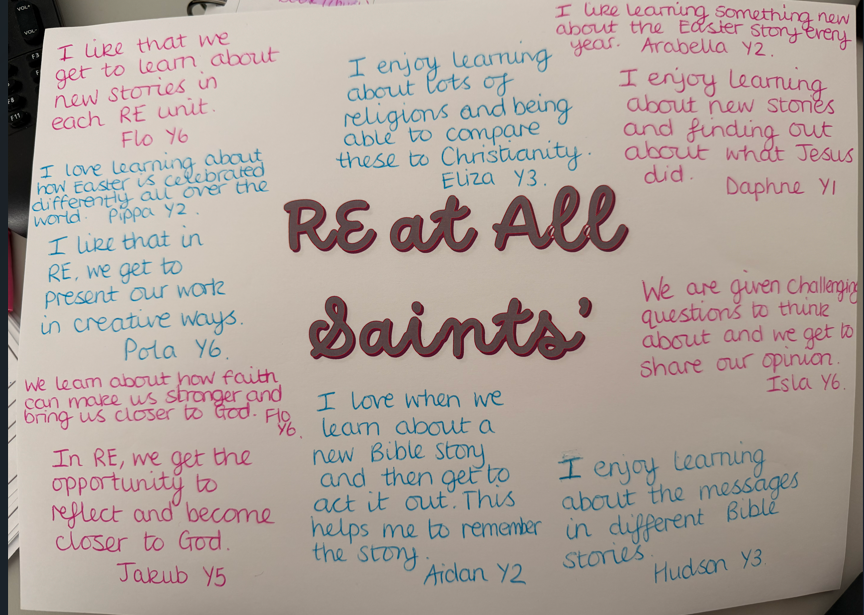 I like that we
get to learn about
new stories in
each RE unit.
Flo Y6
I enjoy learning
about lots of
religions and being
able to compare
these to Christianity.
Eliza Y3.
I like learning something new
about the Easter story every
year. Arabella Y2.
I enjoy learning
about new stories
and finding out
about what Jesus
did. Daphne Y1
I love learning about
how Easter is celebrated
differently all over the
world. Pippa Y2.
RE at All
Saints'
I like that in
RE, we get to
present our work
in creative ways.
Pola Y6.
We are given challenging
questions to think
about and we get to
share our opinion.
Isla Y6.
We learn about how faith
can make us stronger and
bring us closer to God. Flo
Y6.
In RE, we get the
opportunity to
reflect and become
closer to God.
Jakub Y5
I love when we
learn about a
new Bible story
and then get to
act it out. This
helps me to remember
the story.
Aidan Y2
I enjoy learning
about the messages
in different Bible
stories.
Hudson Y3
VOL-
VOL+
F3
F11